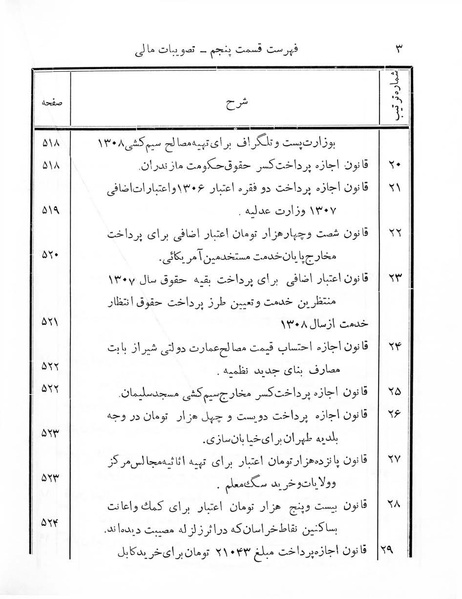 ۳ فهرست قسمت پنجم – تصویبات مالی
شماره ترتیب شرح صفحه
بوزارت پست و تلگراف برای تهیه مصالح سیم کشی ۱۳۰۸ ۵۱۸
۲۰ قانون اجازه پرداخت کسر حقوق حکومت مازندران. ۵۱۸
۲۱ قانون اجازه پرداخت دو فقره اعتبار ۱۳۰۶ و اعتبارات اضافی
۱۳۰۷ وزارت عدلیه . ۵۱۹
۲۲ قانون شصت و چهار هزار تومان اعتبار اضافی برای پرداخت
مخارج پایان خدمت مستخدمین آمریکائی. ۵۲۰
۲۳ قانون اعتبار اضافی برای پرداخت بقیه حقوق سال ۱۳۰۷
منتظرین خدمت و تعیین طرز پرداخت حقوق انتظار
خدمت از سال ۱۳۰۸ ۵۲۱
۲۴ قانون اجازه احتساب قیمت مصالح عمارت دولتی شیراز بابت
مصارف بنای جدید نظمیه . ۵۲۲
۲۵ قانون اجازه پرداخت کسر مخارج سیم کشی مسجد سلیمان. ۵۲۲
۲۶ قانون اجازه پرداخت دویست و چهل هزار تومان در وجه
بلدیه طهران برای خیابان سازی. ۵۲۳
۲۷ قانون پانزده هزار تومان اعتبار برای تهیه اثاثیه مجالس مرکز
و ولایات و خرید سگ معلم . ۵۲۳
۲۸ قانون بیست و پنج هزار تومان اعتبار برای کمک و اعانت
بساکنین نقاط خراسان که در اثر زلزله مصیبت دیده‌اند. ۵۲۴
۲۹ قانون اجازه پرداخت مبلغ ۲۱۰۴۳ تومان برای خرید کابل